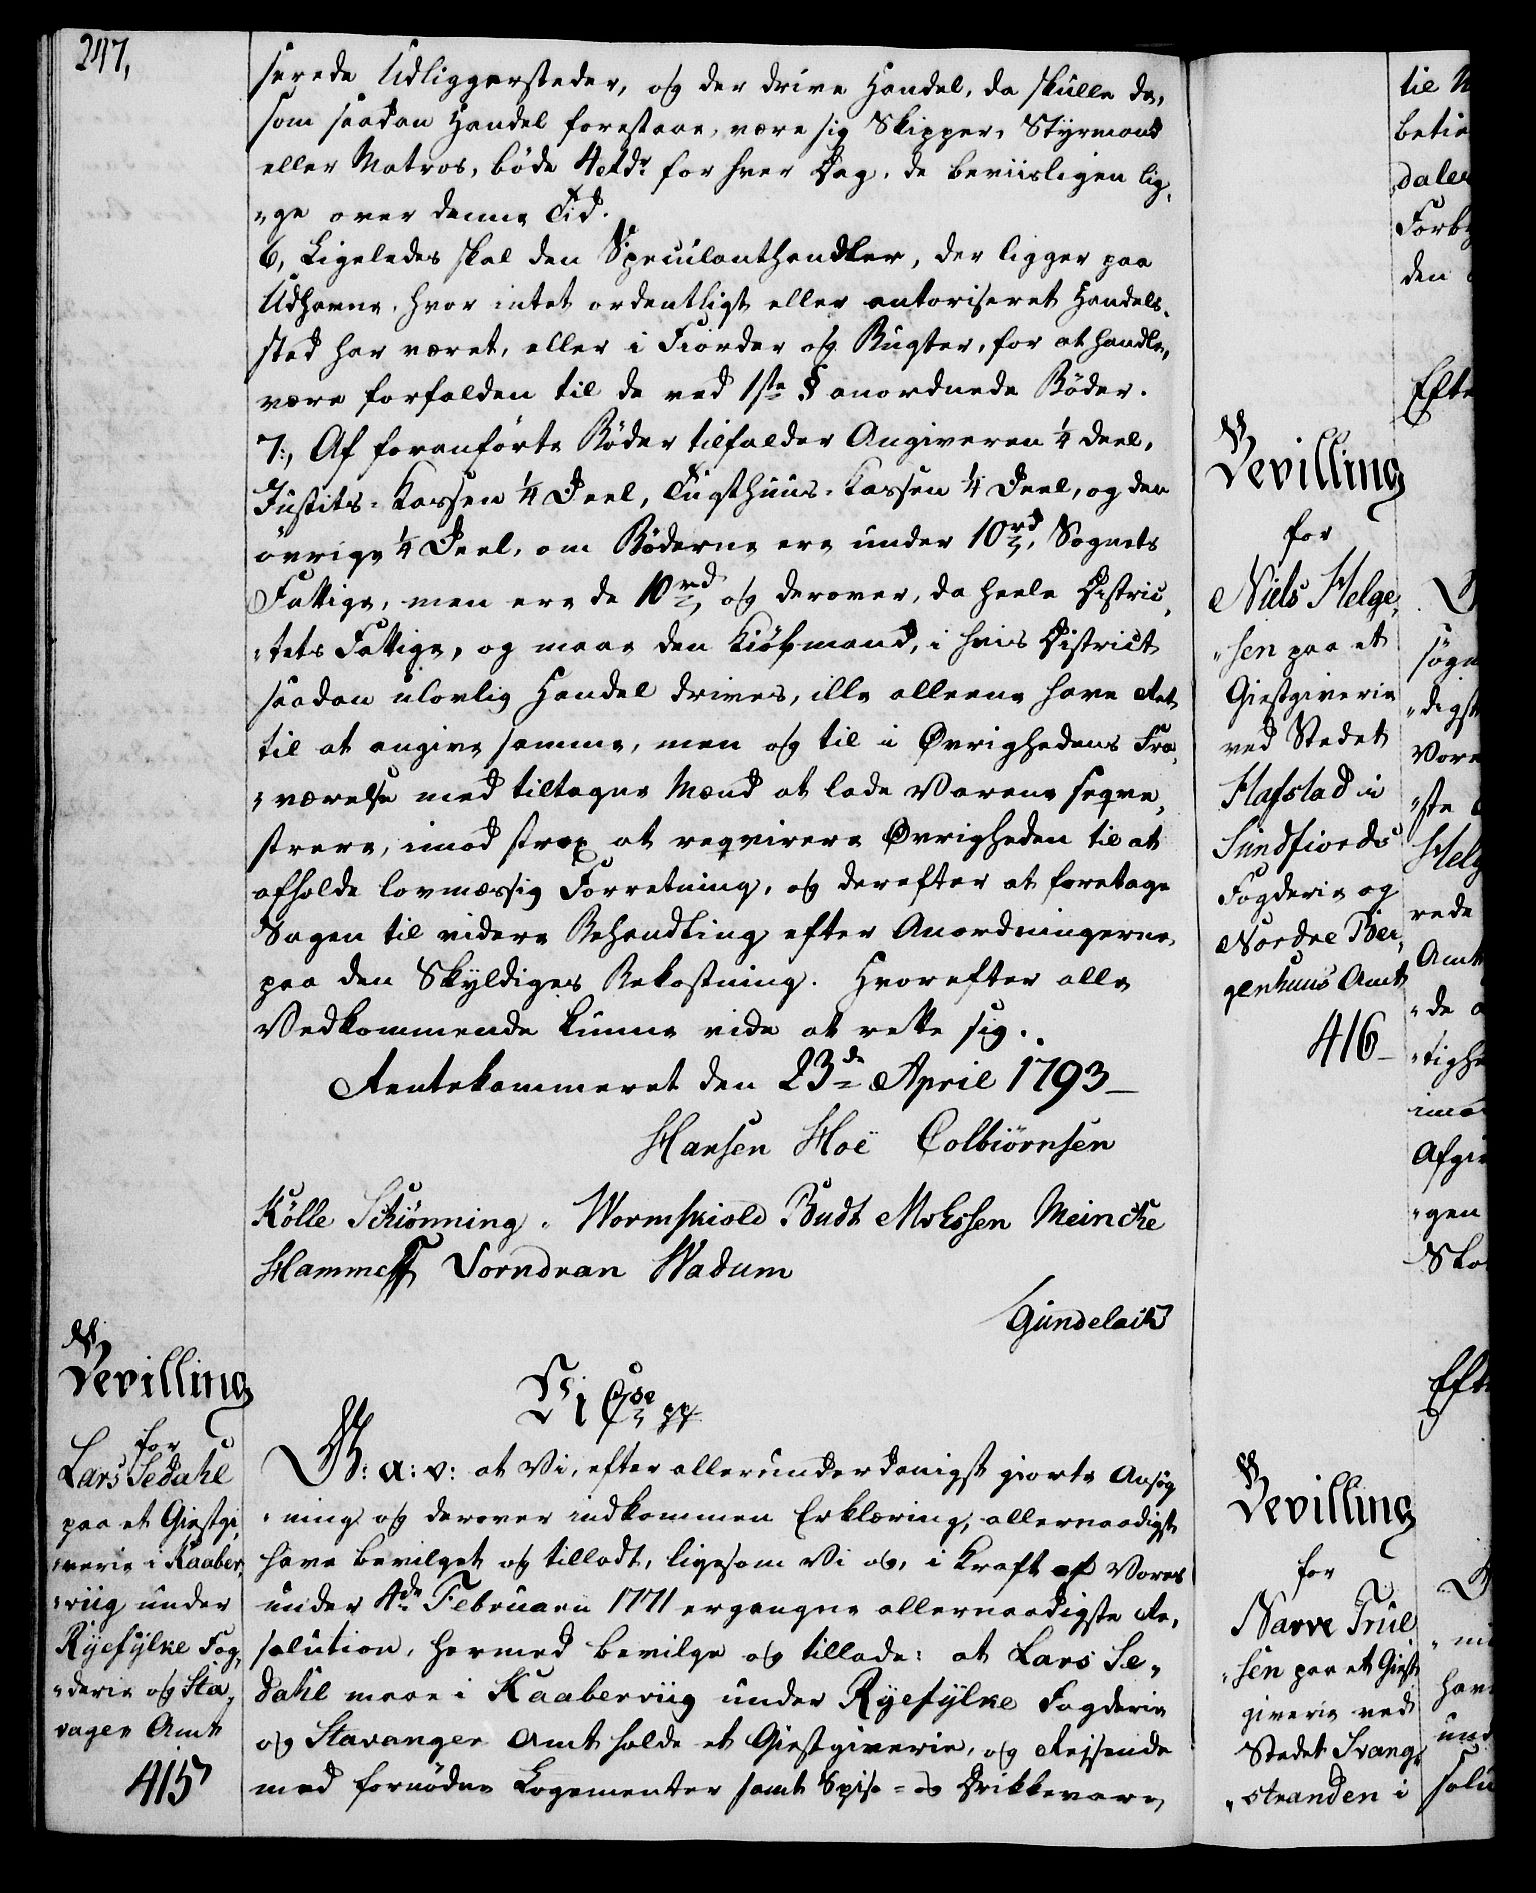 247,
serede Udliggersteder, og der drive Handel, da skulle de,
som saadan Handel forestaae, være sig Skipper, Styrmand
eller Matros, bøde 4 rdr for hver Dag, de beviisligen lig,
„ge over denne Tid.
6, Ligeledes skal den Speculanthandler, der ligger paa
Udhavne, hvor intet ordentligt eller autoriseret Handels,
sted har været, eller i Fiorder og Bugter, for at handle,
være forfalden til de ved 1ste § anordnede Bøder.
7:, Af foranførte Bøder tilfalder Angiveren ¼ deel,
Justits-Kassen ¼ Deel, Tugthuus-Kassen ¼ Deel, og den
øvrige ¼ Deel, om Bøderne ere under 10 rd, Sognets
Fattige, men ere de 10 rd og derover, da heele Distric,
„tets Fattige, og maae den Kiøbmand, i hvis District
saadan ulovlig Handel drives, ikke alleene have Ret
til at angive samme, men og til i Øvrighedens Fra,
„værelse med tiltagne Mænd at lade Varene seqve,
strere, imod strax at reqvirere Øvrigheden til at
afholde lovmæssig Forretning, og derefter at foretage
Sagen til videre Behandling efter Anordningerne,
paa den Skyldiges Bekostning. Hvorefter alle
Vedkommende kunne vide at rette sig.
Rentekammeret den 23de April 1793
Hansen Hoë Colbiørnsen
Kölle Schiønning. Wormskiold Budt Mohssen Meincke
Hammeff Vorndran Wadum
Gündelach
Bevilling
for
Lars Sedahl
paa et Giestgi,
„verie i Kaaber,
„viig under
Ryefylke Fog,
„derie og Sta,
vager Amt
415
Vi C 7de pp
G: A: V: at Vi, efter allerunderdanigst giorte Ansøg
„ning og derover indkommen Erklæring, allernaadigst
have bevilget og tilladt, ligesom Vi og, i Kraft af Vores
under 4de Februarii 1771 ergangne allernaadigste Re,
solution, hermed bevilge og tillade: at Lars Se,
dahl maae i Kaaberviig under Ryefylke Fogderie
og Stavanger Amt holde et Giestgiverie, og Reisende
med fornødne Logementer samt Spise- og Drikkevare
Bevilling
for
Niels Helge,
„sen paa et
Giestgiverie
ved Stedet
Hafstad i
Sundfiords
Fogderie og
Nordre Ber,
genhuus Amt
416
Bevilling
for
Narve Trul
„sen paa et Giest
giverie ved
Stedet Svang,
„stranden i
til
betie
daler
Forby
den
Efte
søgn
„digst
Vore
„ste
Helg
rede
Amt
„de
„tighe
imo
Afgi
„gen
Sko
Eft
hav
und
solu